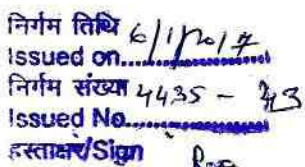 निर्गम तिथि 6/1/2017
Issued on..................
निर्गम संख्या 4435 - 43
Issued No..................
हस्ताक्षर/Sign